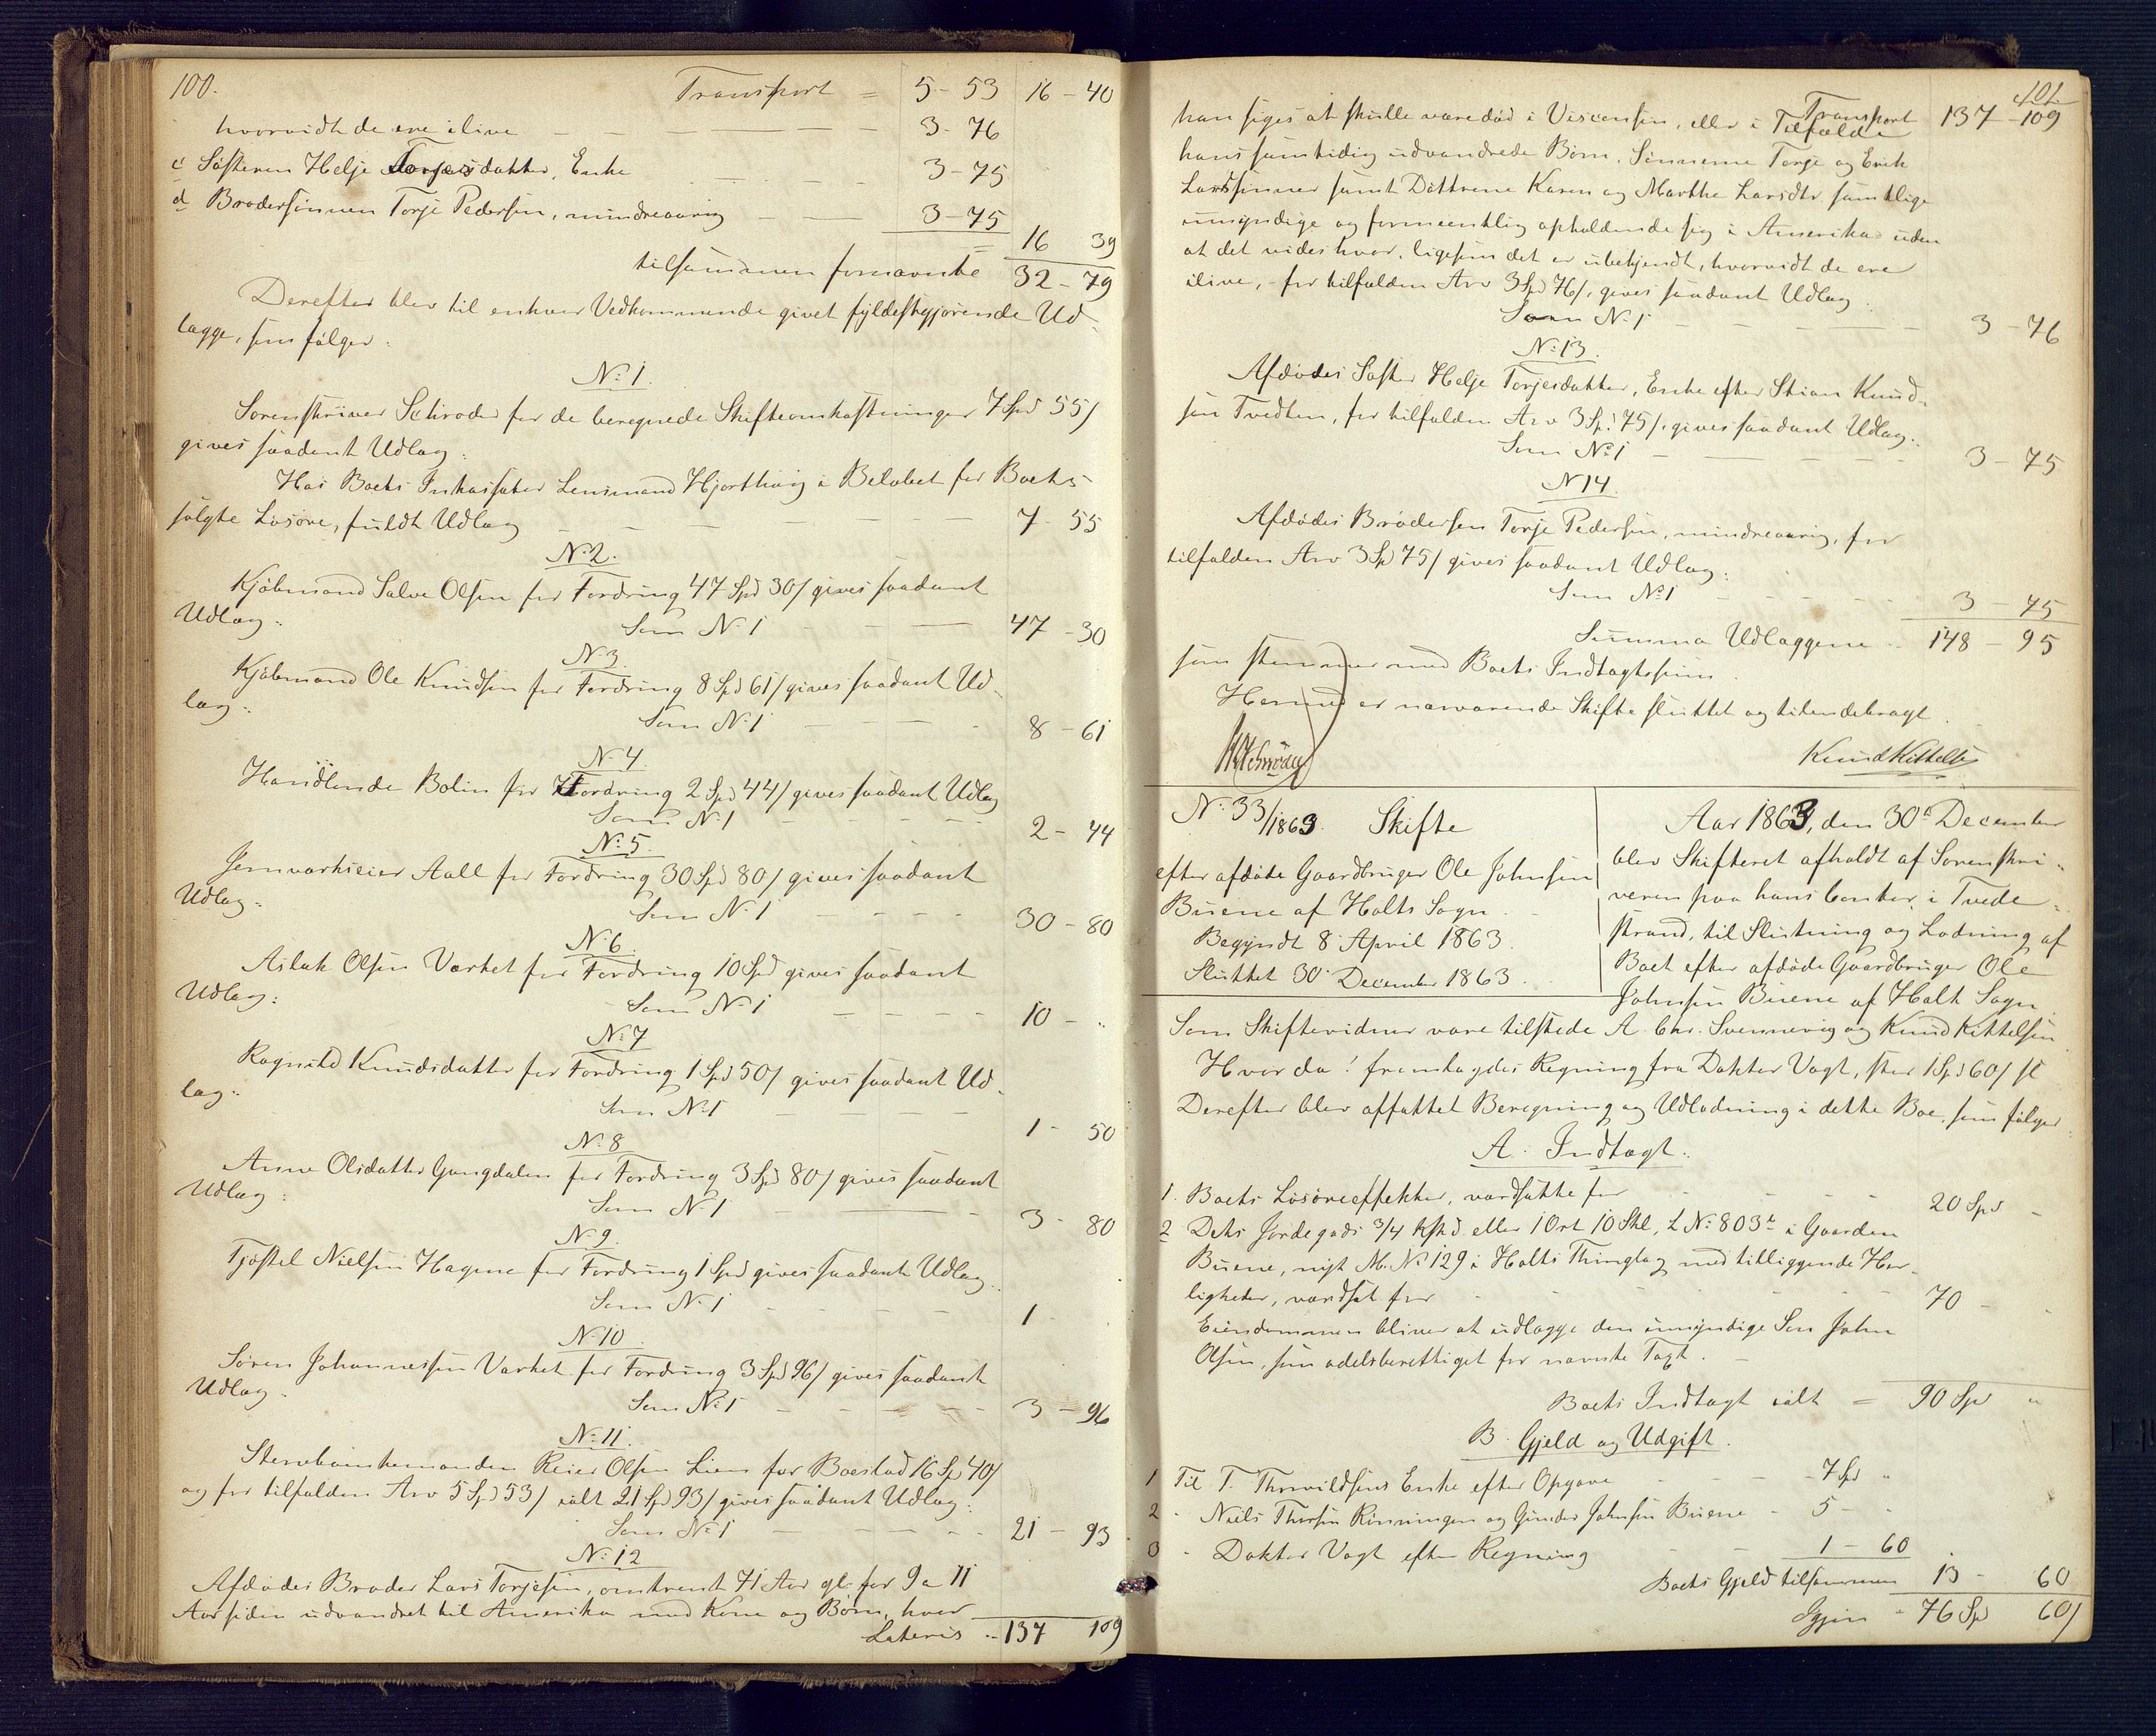 100.
Transport = 5 - 53 16 - 40
hvorvidt de ere ilive - - - 3 - 76
c Søsteren Helje Torjesdatter, Enke - - - 3 - 75
d Brodersønnen Torje Pedersen, mindreaarig - - 3 - 75
= 16 39
tilsammen fornævnte 32 - 79
Derefter blev til enhver Vedkommende givet fyldestgjørende Ud-
lægge, som følger:
No 1.
Sorenskriver Schrøder for de beregnede Skifteomkostninger 7 Spd 55/
gives saadant Udlæg:
Hos Boets Inkassator Lensmand Hjorthoug i Beløbet for Boets
solgte Løsøre, fuldt Udlæg - - - 7 - 55
No 2.
Kjøbmand Salve Olsen for Fordring 47 Spd 30/ gives saadant
Udlæg: Som No 1 - - - 47 - 30
No 3.
Kjøbmand Ole Knudsen for Fordring 8 Spd 61/ gives saadant Ud-
læg: Som No 1 - - - 8 - 61
No 4.
Handlende Bolin for Fordring 2 Spd 44/ gives saadant Udlæg
Som No 1 - - - 2 - 44
No 5.
Jernværkseier Aall for Fordring 30 Spd 80/ gives saadant
Udlæg: Som No 1 - - - 30 - 80
No 6.
Aslak Olsen Værket for Fordring 10 Spd gives saadant
Udlæg: Som No 1 - - - 10 - "
No 7
Ragnild Knudsdatter for Fordring 1 Spd 50/ gives saadant Ud-
læg: Som No 1 - - - 1 - 50
No 8
Anne Olsdatter Gangdalen for Fordring 3 Spd 80/ gives saadant
Udlæg: Som No 1 - - - 3 - 80
No 9.
Tjøstel Nielsen Hagene for Fordring 1 Spd gives saadant Udlæg.
Som No 1 - - - 1 -
No 10.
Søren Johannessen Værket for Fordring 3 Spd 96/ gives saadant
Udlæg. Som No 1 - - - 3 - 96
No 11.
Stervboenkemanden Reier Olsen Lien for Boeslod 16 Sp 40/
og for tilfalden Arv 5 Spd 53/ ialt 21 Spd 93/ gives saadant Udlæg:
Som No 1 - - - 21 - 93
No 12
Afdødes Broder Lars Torjesen, omtrent 71 Aar gl. for 9 a 11
Aar siden udvandret til Amerika med Kone og Børn, hvor
Lateris - 137 109
101
Transport 137 - 109
han siges at skulle være død i Visconsin, eller i Tilfælde
hans samtidig udvandrede Børn, Sønnerne Torje og Erik
Larssønner samt Døttrene Karen og Marthe Larsdtr. samtlige
umyndige og formeentlig opholdende sig i Amerika uden
at det vides hvor, ligesom det er ubekjendt, hvorvidt de ere
ilive, for tilfalden Arv 3 Spd 76/, gives saadant Udlæg.
Som No 1 - - - 3 - 76
No 13.
Afdødes Søster Helje Torjesdatter, Enke efter Stian Knud-
sen Tvedten, for tilfalden Arv 3 Sp. 75/. gives saadant Udlæg:
Som No 1 - - - 3 - 75
No 14.
Afdødes Brodersøn Torje Pedersen, mindreaarig, for
tilfalden Arv 3 Sp 75/ gives saadant Udlæg:
Som No 1 - - - 3 - 75
Summa Udlæggene - 148 - 95
som stemmer med Boets Indtægtssum.
Hermed er nærværende Skifte sluttet og tilendebragt.
Schrøder
Knud Kittelsen
No 33/1863. Skifte
efter afdøde Gaardbruger Ole Johnsen
Buene af Holts Sogn.
Begyndt 8 April 1863.
Sluttet 30 December 1863.
Aar 1863, den 30te December
blev Skifteret afholdt af Sorenskri-
veren paa hans Contor i Tvede-
strand, til Slutning og Lodning af
Boet efter afdøde Gaardbruger Ole
Johnsen Buene af Holt Sogn.
Som Skiftevidner vare tilstede A. Chr. Svennevig og Knud Kittelsen.
Hvor da! fremlagdes Regning fra Doktor Vogt, stor 1 Spd 60/ sl
Derefter blev affattet Beregning og Udlodning i dette Boe, som følger:
A. Indtægt.
1. Boets Løsøreeffekter, værdsatte for - - - 20 Spd -
2 Dets Jordegods 3/4 Hd eller 1 Ort 10 Skl, L No 803 i Gaarden
Buene, nyt M. No 129 i Holts Thinglag med tilliggende Her-
ligheder, værdsat for - - - 70 - "
Eiendommen bliver at udlægge den umyndige Søn John
Olsen, som odelsberettiget for nævnte Taxt.
Boets Indtægt ialt = 90 Spd "
B. Gjeld og Udgift.
1 Til T. Thorvildsens Enke efter Opgave - - - 7 Spd "
2 - Niels Thorsen Rønningen og Gunder Johnsen Buene - 5 - "
3 - Doktor Vogt efter Regning - - 1 - 60
Boets Gjeld tilsammen 13 - 60
Igjen - 76 Sp 60/